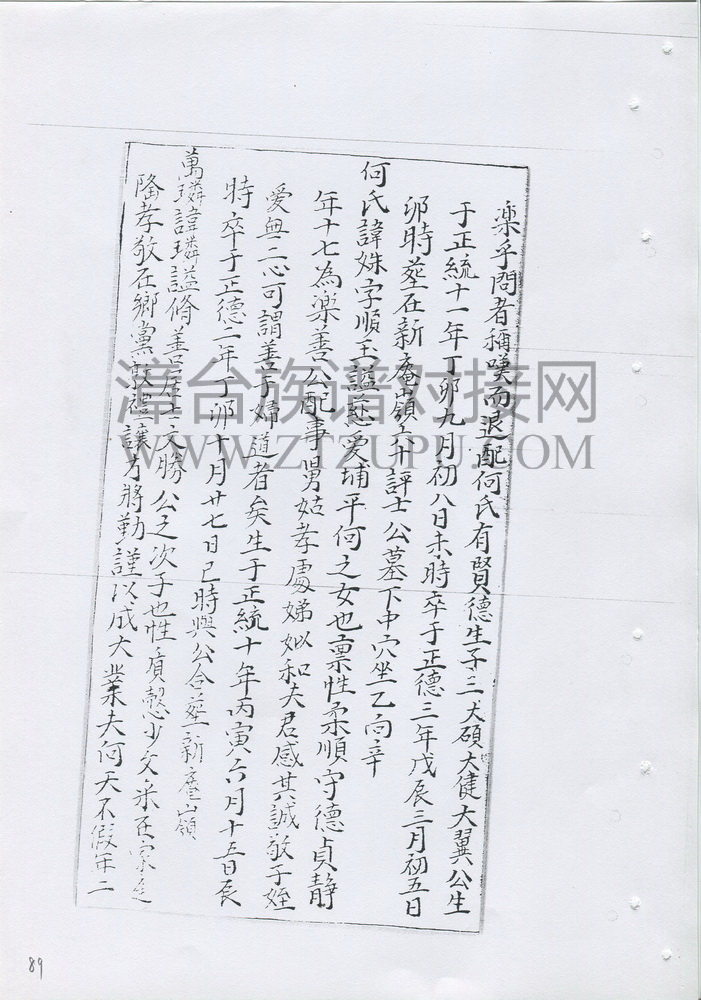 樂乎問者稱嘆而退配何氏有賢德生子三大碩大健大翼公生
于正統十一年丁卯九月初八日未時卒于正德三年戊辰三月初五日
卯時葬在新庵嶺六十評士公墓下中穴坐乙向辛
何氏諱姝字順玉謚慈愛埔平何之女也禀性柔順守德貞静
年十七為樂善公配事舅姑孝處娣姒和夫君感其誠敬子姪
愛無二心可謂善于婦道者矣生于正統十年丙寅六月十五日辰
時卒于正德二年丁卯十月廿七日巳時與公合葬新庵嶺
萬璘諱璘謚脩善居士文勝公之次子也性質慤少文采在家
隆孝敬在鄉黨敦禮讓方將勤謹以成大業夫何天不假年二
漳台族谱对接网
WWW.ZTZUPU.COM
89